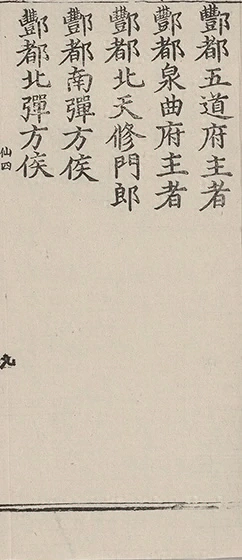 酆都五道府主者
酆都泉曲府主者
酆都北天修門郎
酆都南彈方侯
酆都北彈方侯
仙四
九